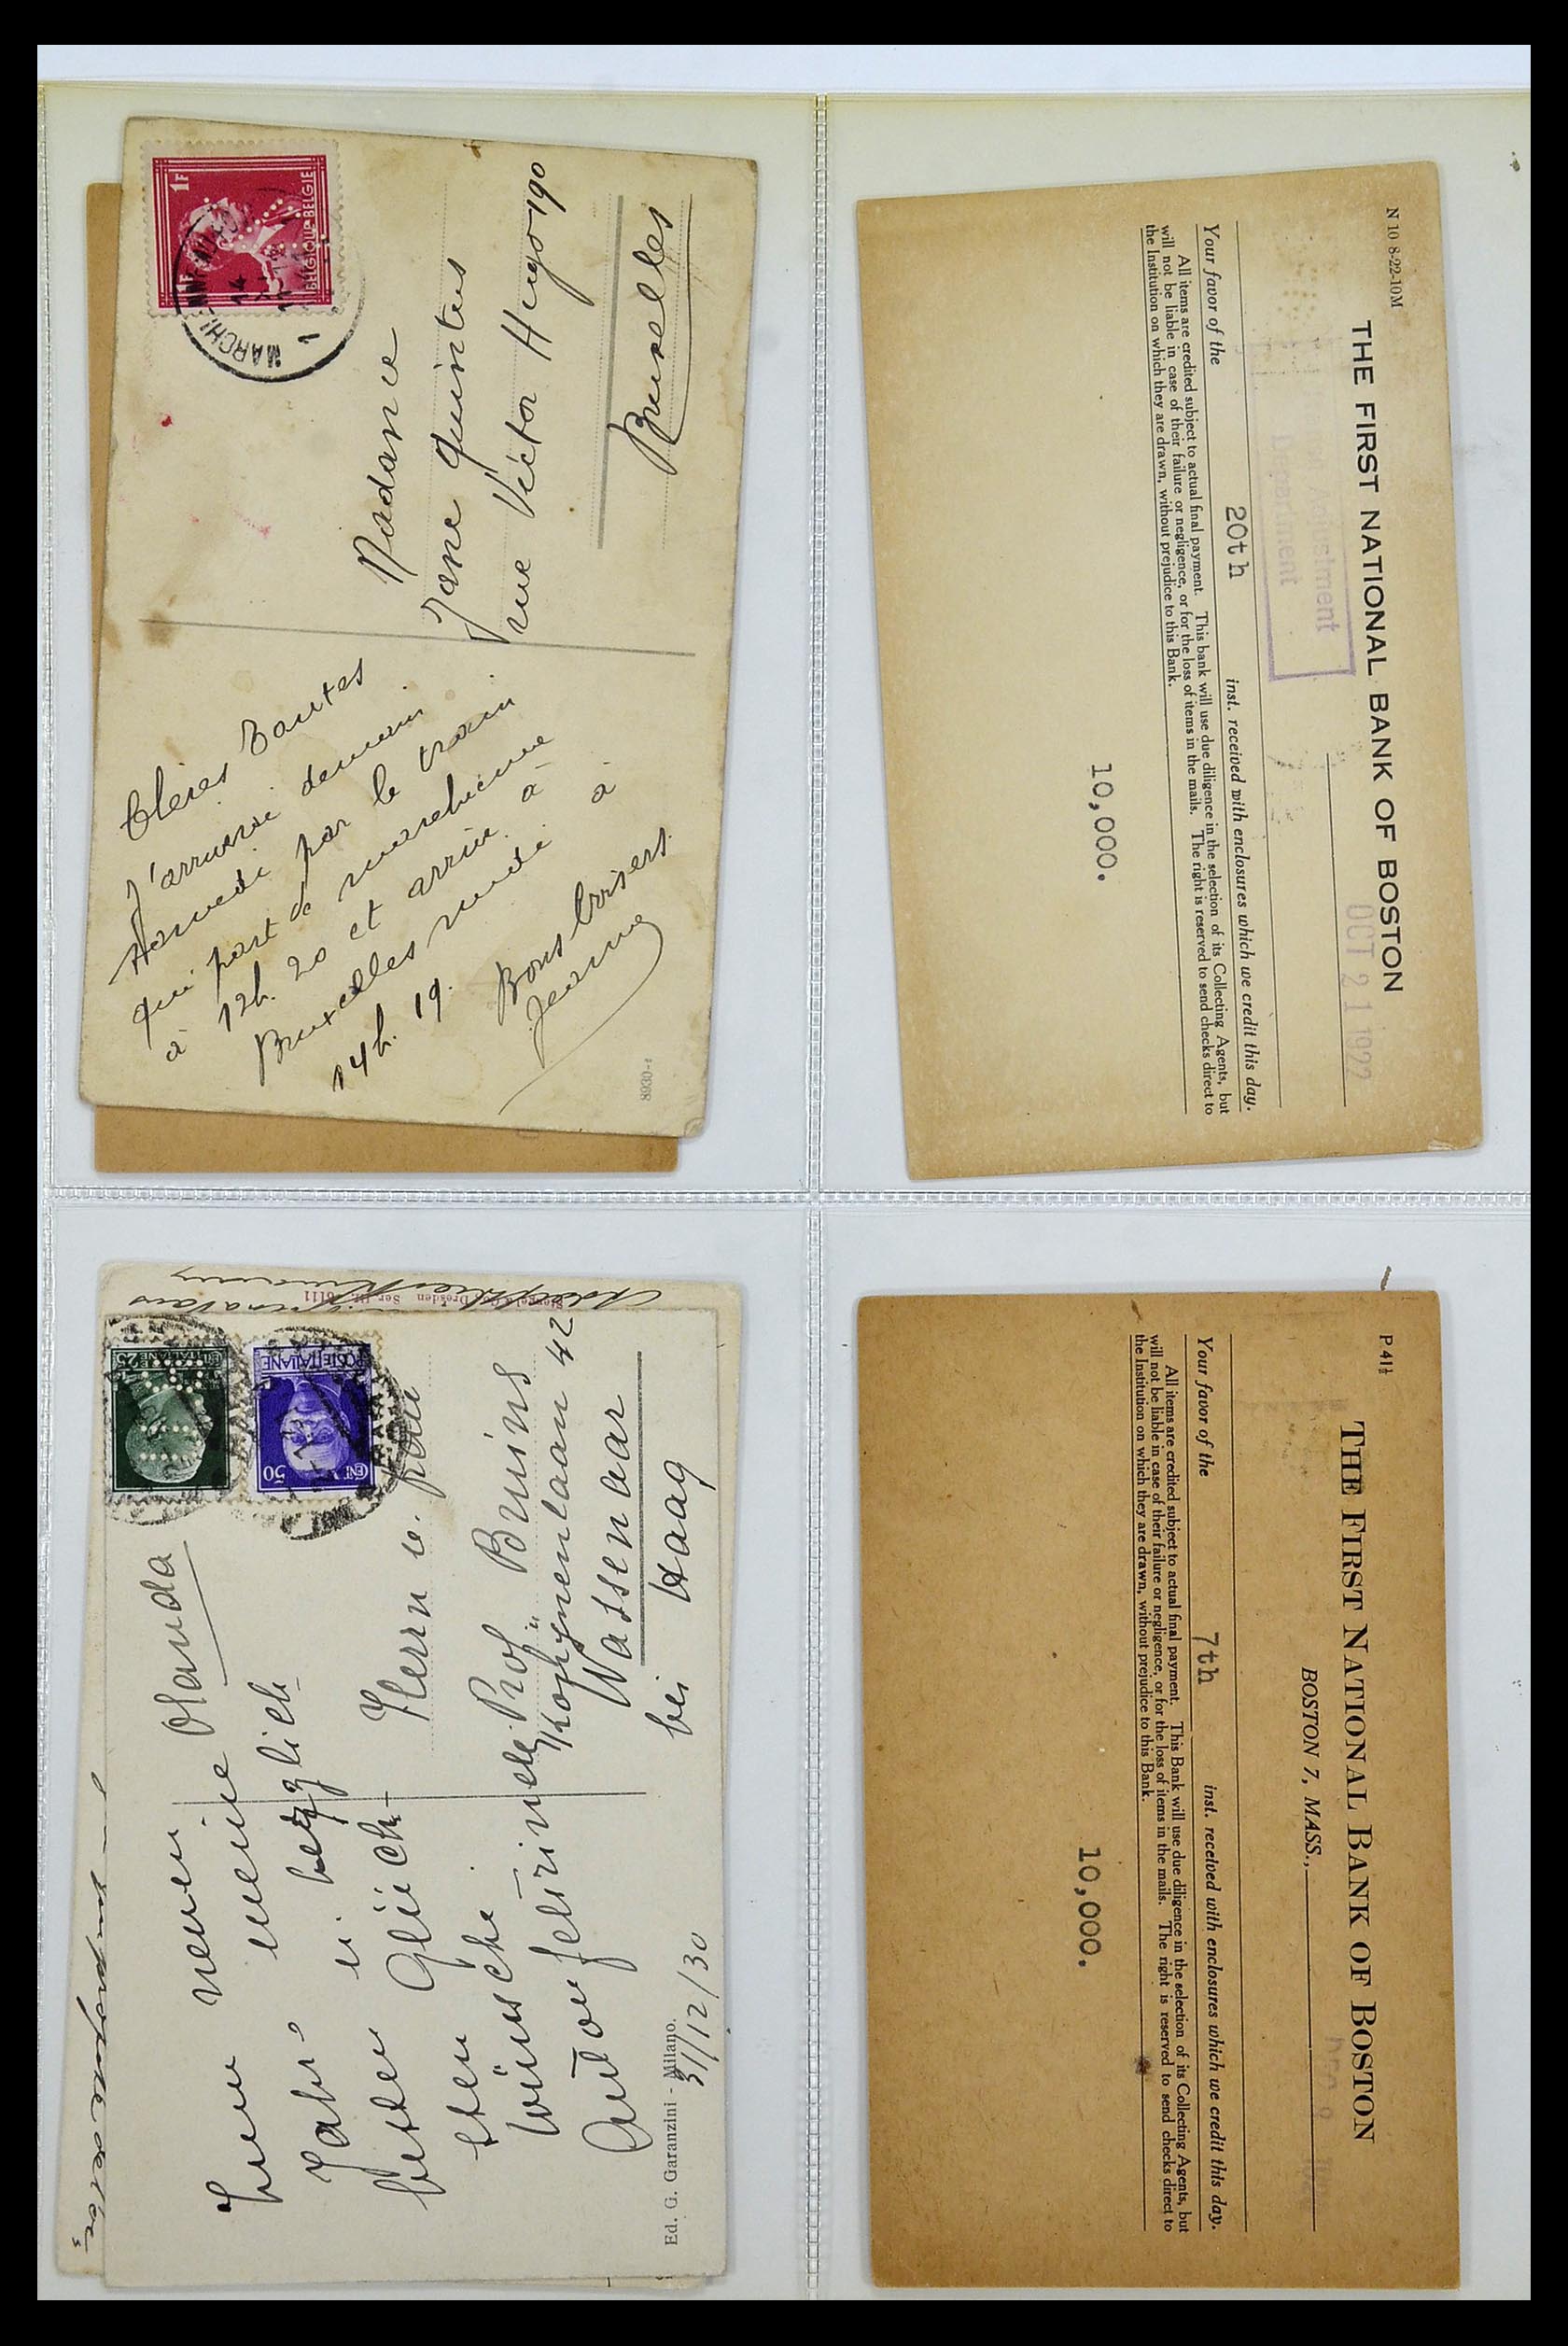 1F
BELGIQUE-BELGIE
MARCHIENNE
14
Madame
Jane Quintens
rue Victor Hugo 190
Bruxelles
Chères Tantes
J'arriverai demain
samedi par le train
qui part de marchienne
à 12h. 20 et arrive à
Bruxelles midi à
14h. 19.
Bons baisers
Jeanne
8930-4
N 10 8-22-10M
THE FIRST NATIONAL BANK OF BOSTON
OCT 21 1922
Adjustment
Department
Your favor of the 20th inst. received with enclosures which we credit this day.
All items are credited subject to actual final payment. This bank will use due diligence in the selection of its Collecting Agents, but
will not be liable in case of their failure or negligence, or for the loss of items in the mails. The right is reserved to send checks direct to
the Institution on which they are drawn, without prejudice to this Bank.
10,000.
Stengel & Co., Dresden Ser. III. 6111
POSTE ITALIANE
CENT. 50
Olanda
Herrn u. Frau
Prof. Bruins
Wassenaar
bei Haag
Zum neuen
Jahr meine
besten
herzlich-
sten Glück-
wünsche
31/12/30
Ed. G. Garanzini - Milano.
P 41½
THE FIRST NATIONAL BANK OF BOSTON
BOSTON 7, MASS.,
Your favor of the 7th inst. received with enclosures which we credit this day.
All items are credited subject to actual final payment. This Bank will use due diligence in the selection of its Collecting Agents, but
will not be liable in case of their failure or negligence, or for the loss of items in the mails. The right is reserved to send checks direct to
the Institution on which they are drawn, without prejudice to this Bank.
10,000.